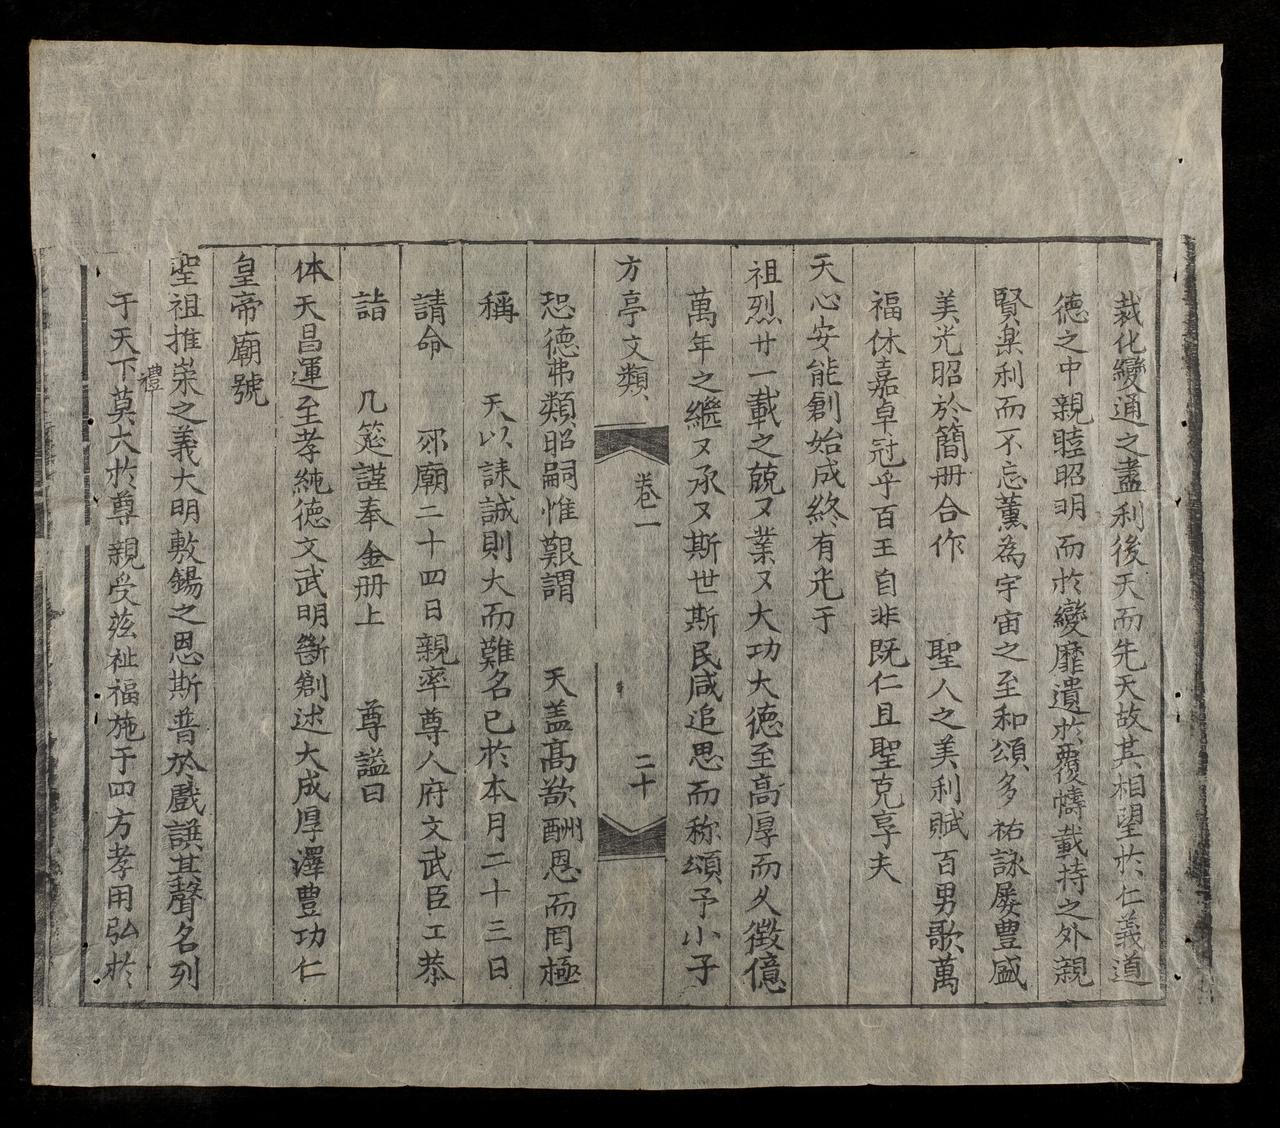 裁化變通之盡利後天而先天故其相望於仁義道
德之中親睦昭明而於變靡遺於覆幬載持之外親
賢楽利而不忘薰為宇宙之至和頌多祐詠屡豊盛
美光昭於簡册合作 聖人之美利賦百男歌萬
福休嘉卓冠乎百王自非既仁且聖克享夫
天心安能創始成終有光于
祖烈廿一載之兢又業又大功大德至高厚而久徵億
萬年之繼又承又斯世斯民咸追思而称頌予小子
方亭文類 卷一 二十
恐德弗類昭嗣惟艱謂 天盖髙欲酬恩而罔極
稱 天以誄誠則大而難名已於本月二十三日
請命 郊廟二十四日親率尊人府文武臣工恭
詣 几筵謹奉 金册上 尊謚曰
体天昌運至孝純德文武明斷創述大成厚澤豊功仁
皇帝廟號
聖祖推崇之義大明敷錫之恩斯普於戲譔其聲名列
于天下莫大於尊親受茲祉福施于四方孝用弘於
禮